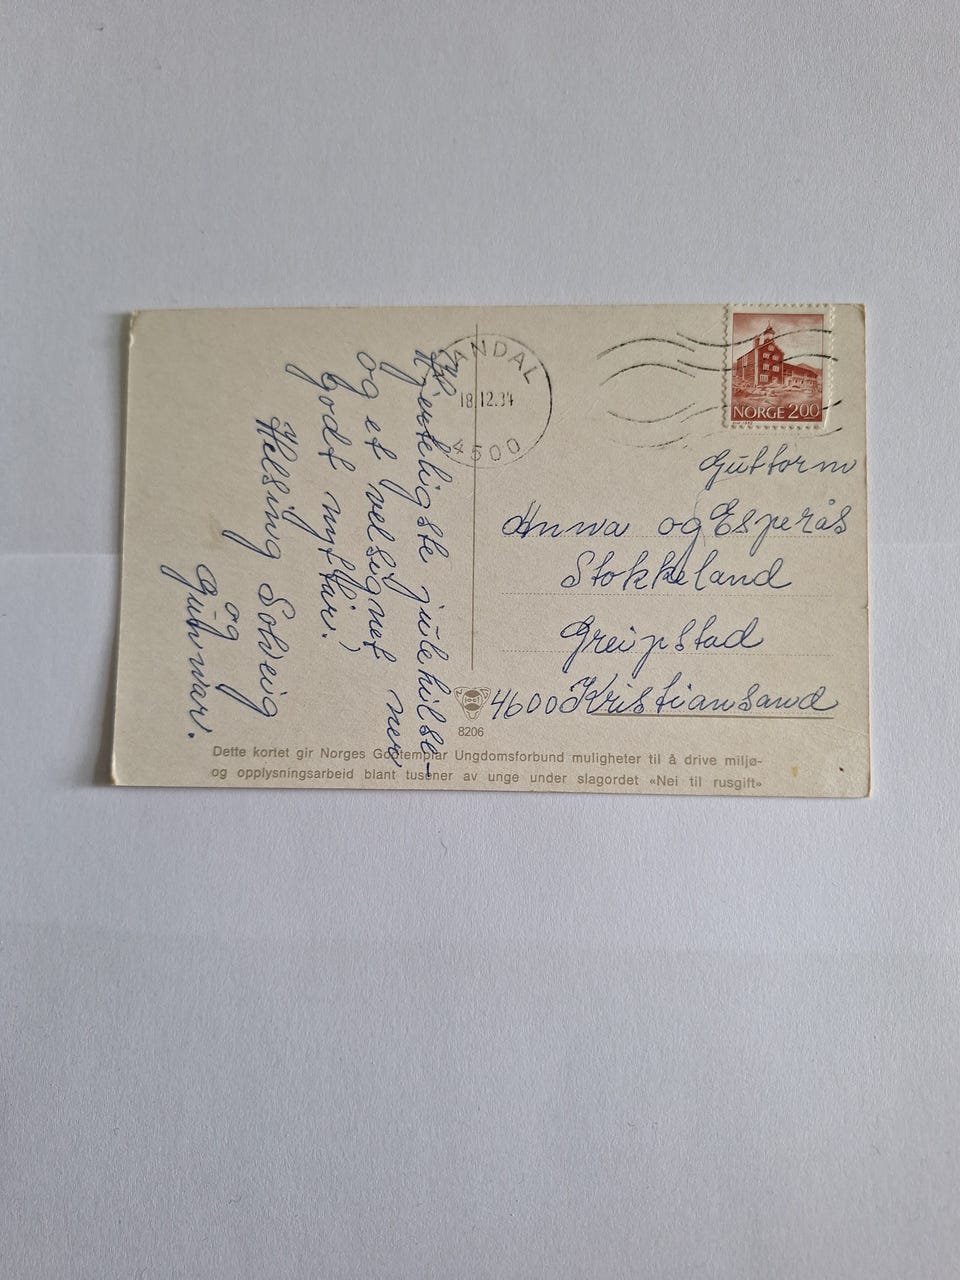 Hjerteligste julehilse-
og et velsignet
godt nyttår.
Helsing Solveig
og
Gunvar.
MANDAL
18.12.84
4500
NORGE 200
Guttorm
Anna og Esperås
Stokkeland
Greipstad
4600 Kristiansand
8206
Dette kortet gir Norges Godtemplar Ungdomsforbund muligheter til å drive miljø-
og opplysningsarbeid blant tusener av unge under slagordet «Nei til rusgift»